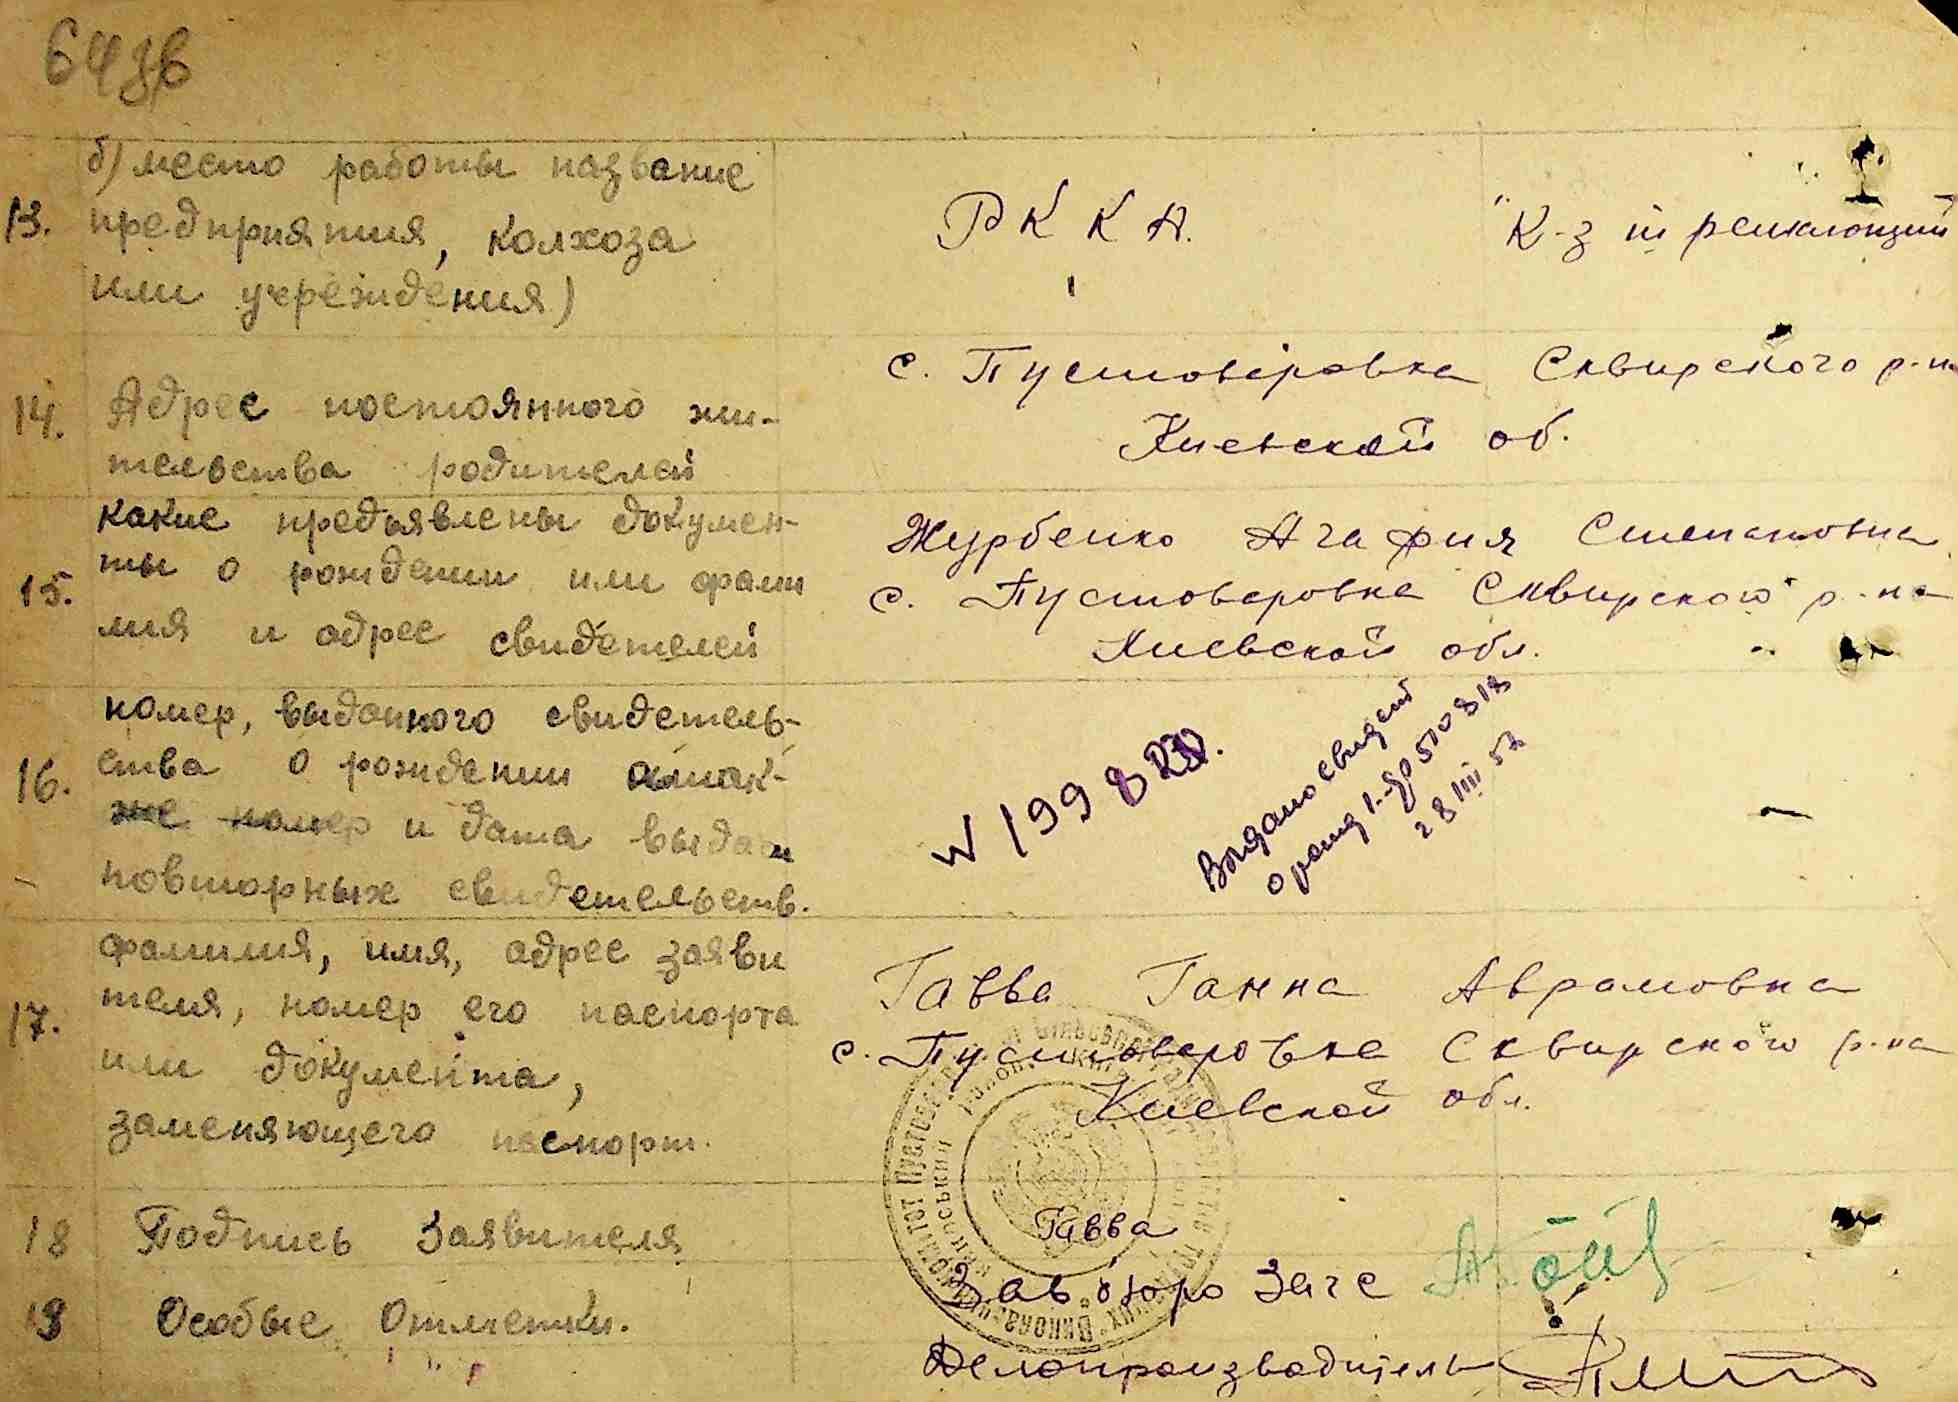 64зв
б) место работы название
13. предприятия, колхоза
или учреждения)
Р К К А.
К-з III решающий
14. Адрес постоянного жи-
тельства родителей
с. Пустоваровка Сквирского р-на
Киевской об.
какие предъявлены докумен-
ты о рождении или фами
15. лия и адрес свидетелей
Журбенко Агафия Степановна
с. Пустоваровка Сквирского р-на
Киевской обл.
номер, выданного свидетель-
16. ства о рождении а так-
же номер и дата выдачи
повторных свидетельств.
N 199
Выдано свидет
о рожд
28 III 52
фамилия, имя, адрес заяви
17. теля, номер его паспорта
или документа,
заменяющего паспорт.
Гавва Ганна Аврамовна
с. Пустоваровка Сквирского р-на
Киевской обл.
18 Подпись Заявителя
Гавва
19 Особые Отметки.
Зав бюро Загс
Делопроизводитель